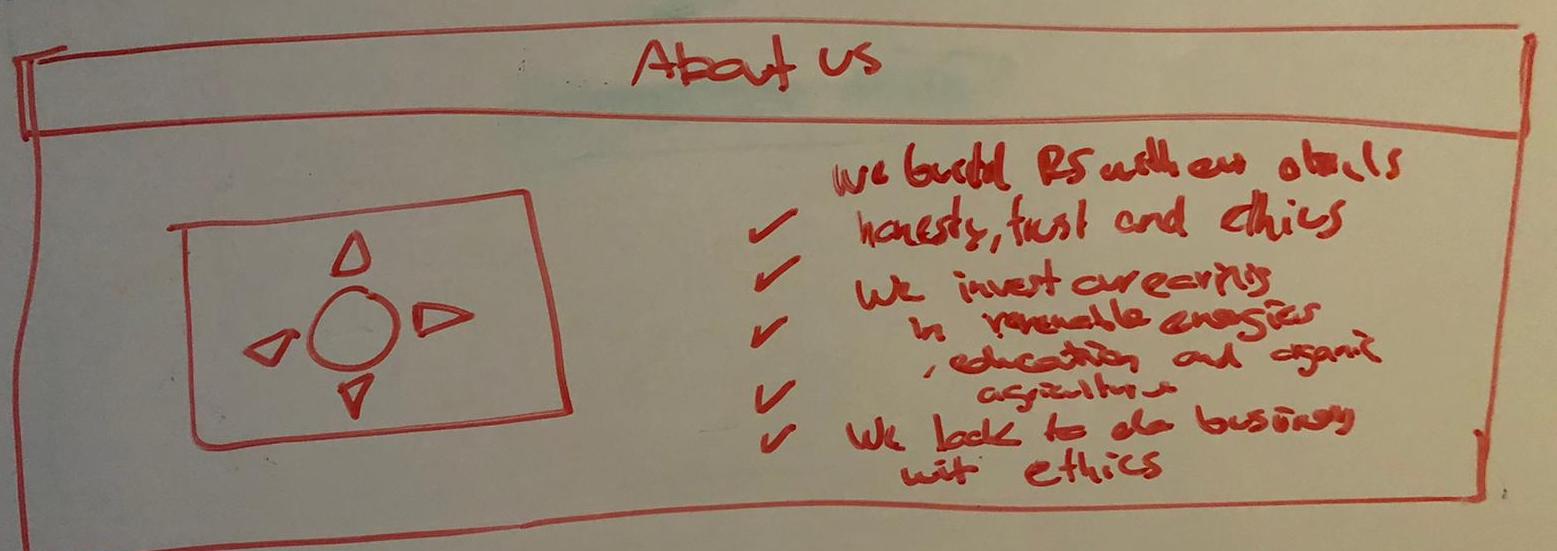 About us
We build RS with our
honesty, trust and ethics
We invest our earnings
in renewable energies
, education and organic
agriculture
We look to do business
wit ethics